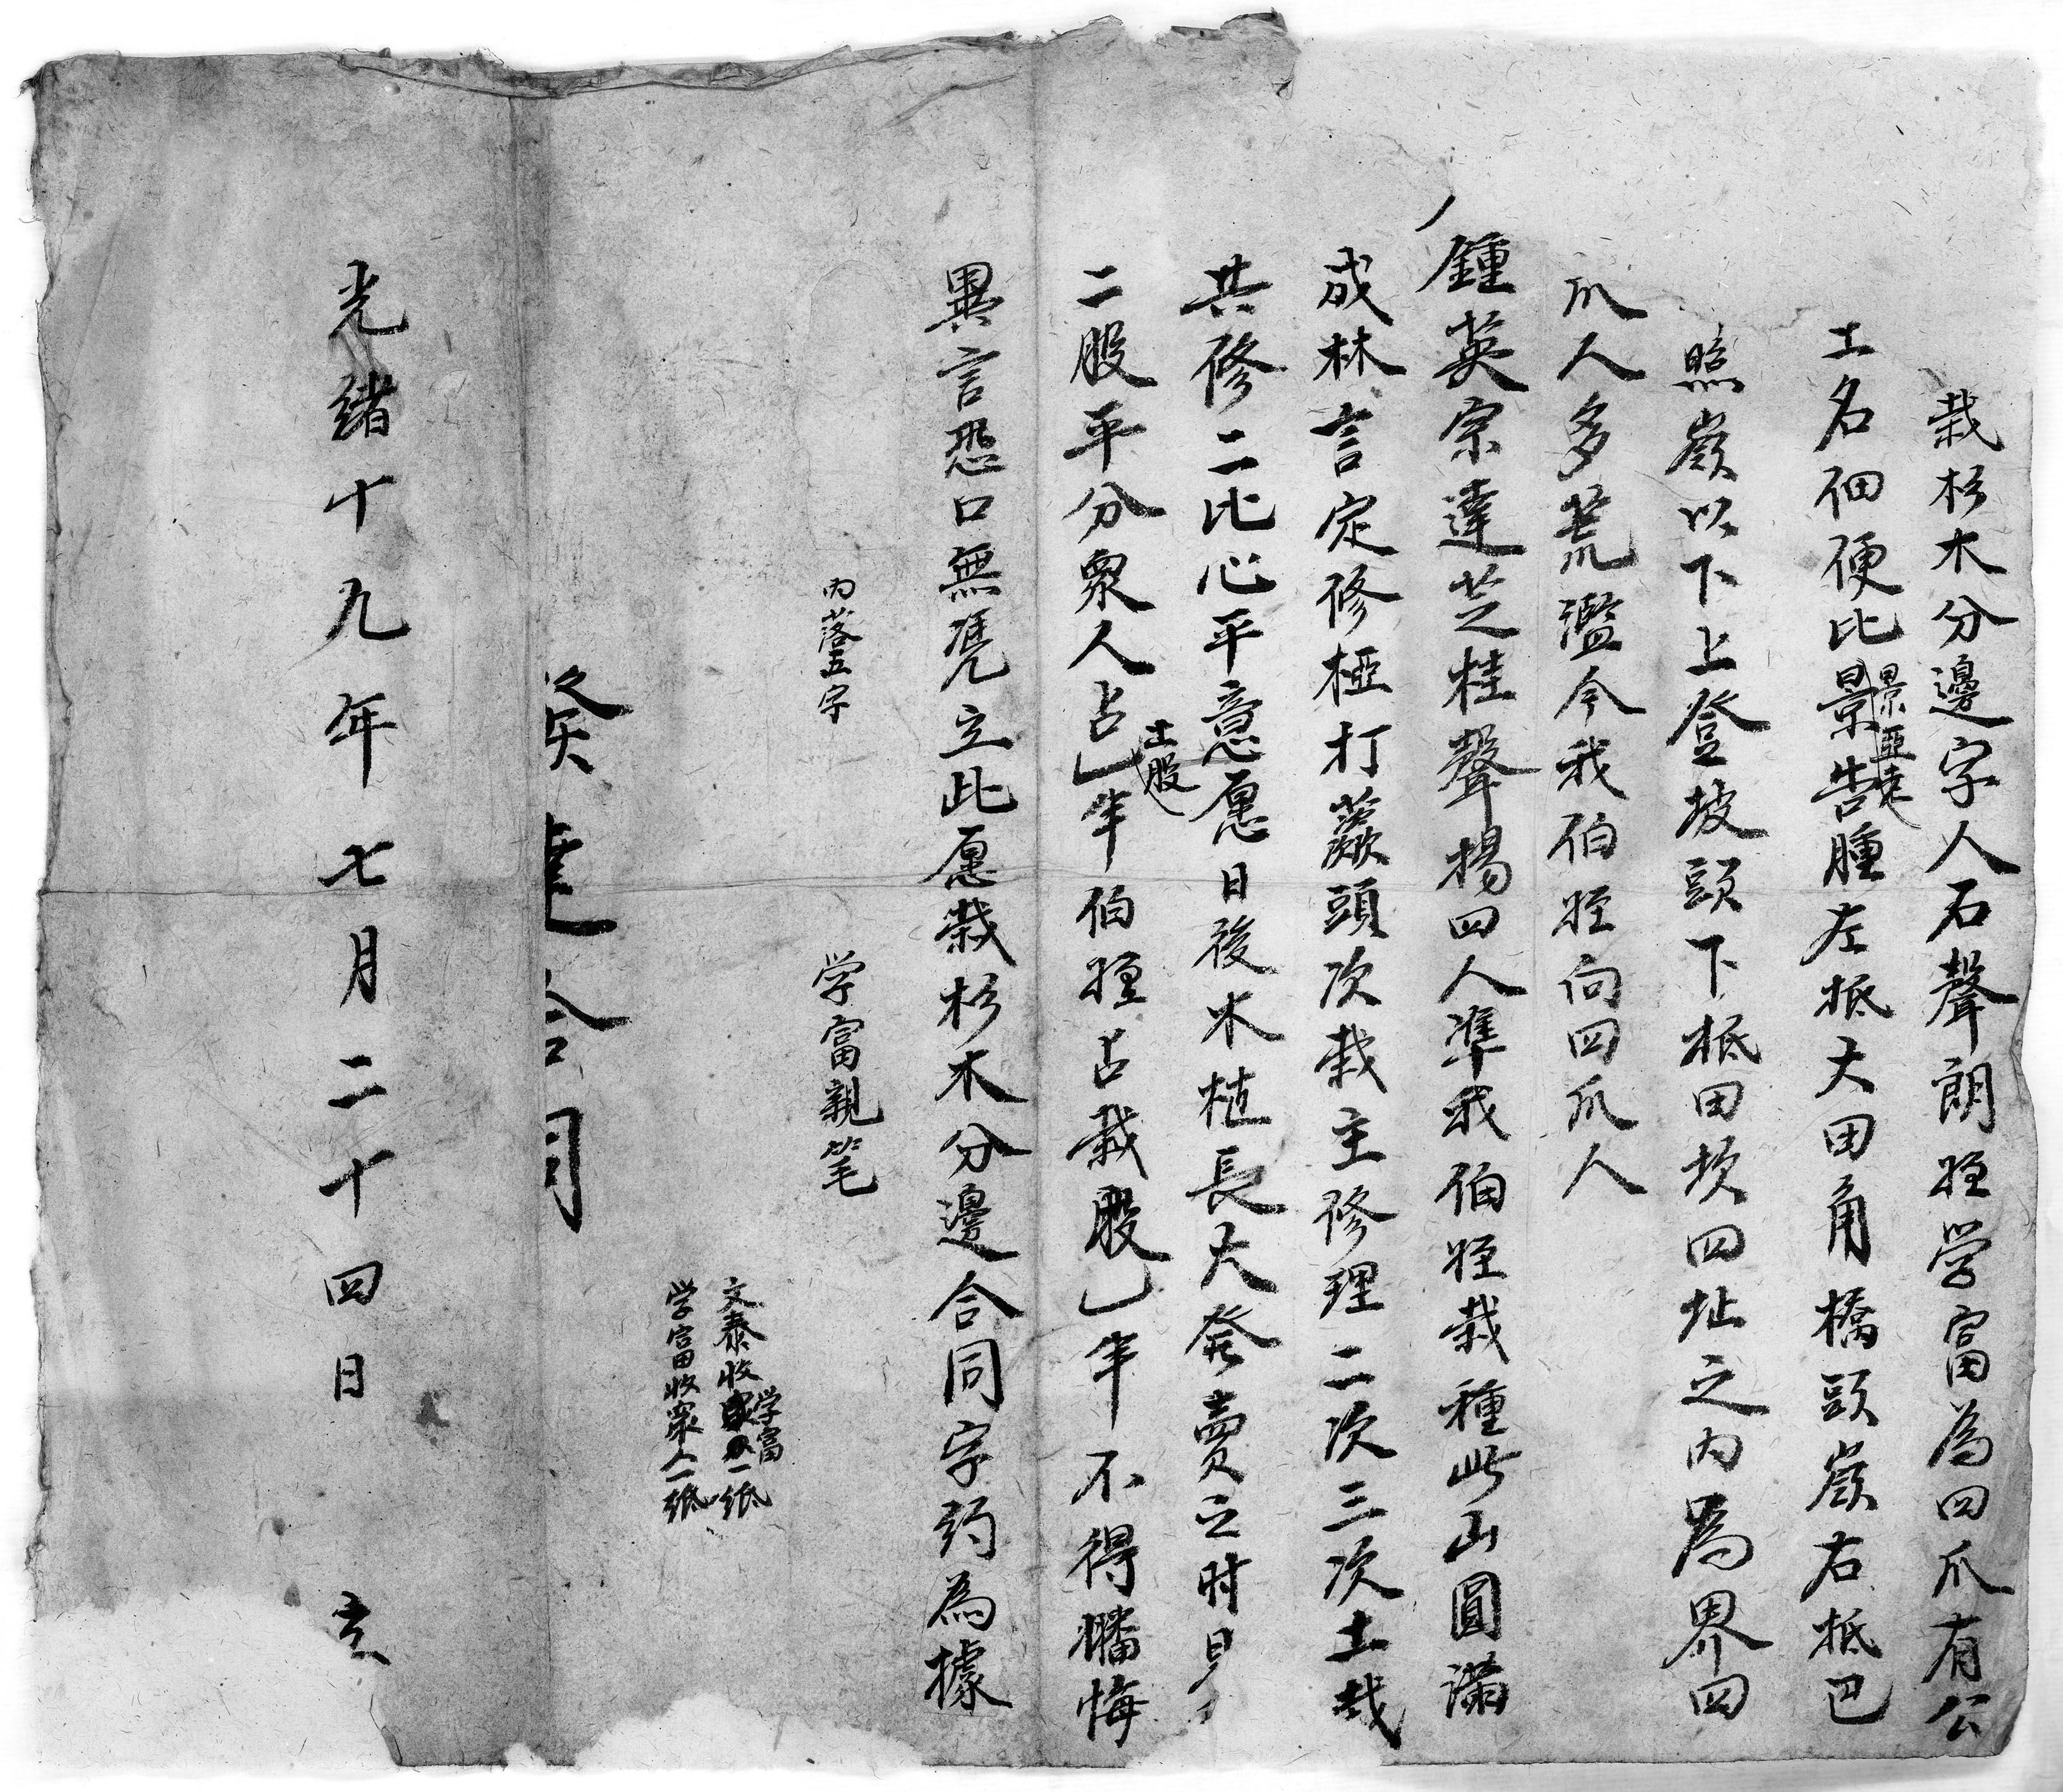 栽杉木分邊字人石聲朗姪学富為四爪有公
土名佃便比景告腫左抵大田角橋頭嶺右抵巴
景亞
照嶺以下上登坡頭下抵田坎四址之内為界四
爪人多荒濫今我伯姪向四爪人
鍾英宗達芝桂聲揚四人準我伯姪栽種此山圓滿
成林言定修椏打蕨頭次栽主修理二次三次土栽
共修二比心平意愿日後木植長大発賣之时
二股平分衆人占乚半伯姪占栽股乚半不得㡢悔
土股
異言恐口無凴立此愿栽杉木分邊合同字約為據
内落五字
学富親笔
文泰收一纸
学富
学富收衆人一紙
合同
光緒十九年七月二十四日 立